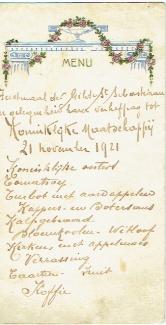 MENU
Feestmaal der Gilde St Sebastiaan
ter gelegenheid harer verheffing tot
Koninklijke Maatschappij
21 november 1921
Koninklijke oesters
Tomatsoep
Turbot met aardappelen
Kappers- en Botersaus
Kalfsgebraad
Bloemkoolen - Witloof
Kiekens met appelmoes
Verrassing
Taarten Fruit
Koffie